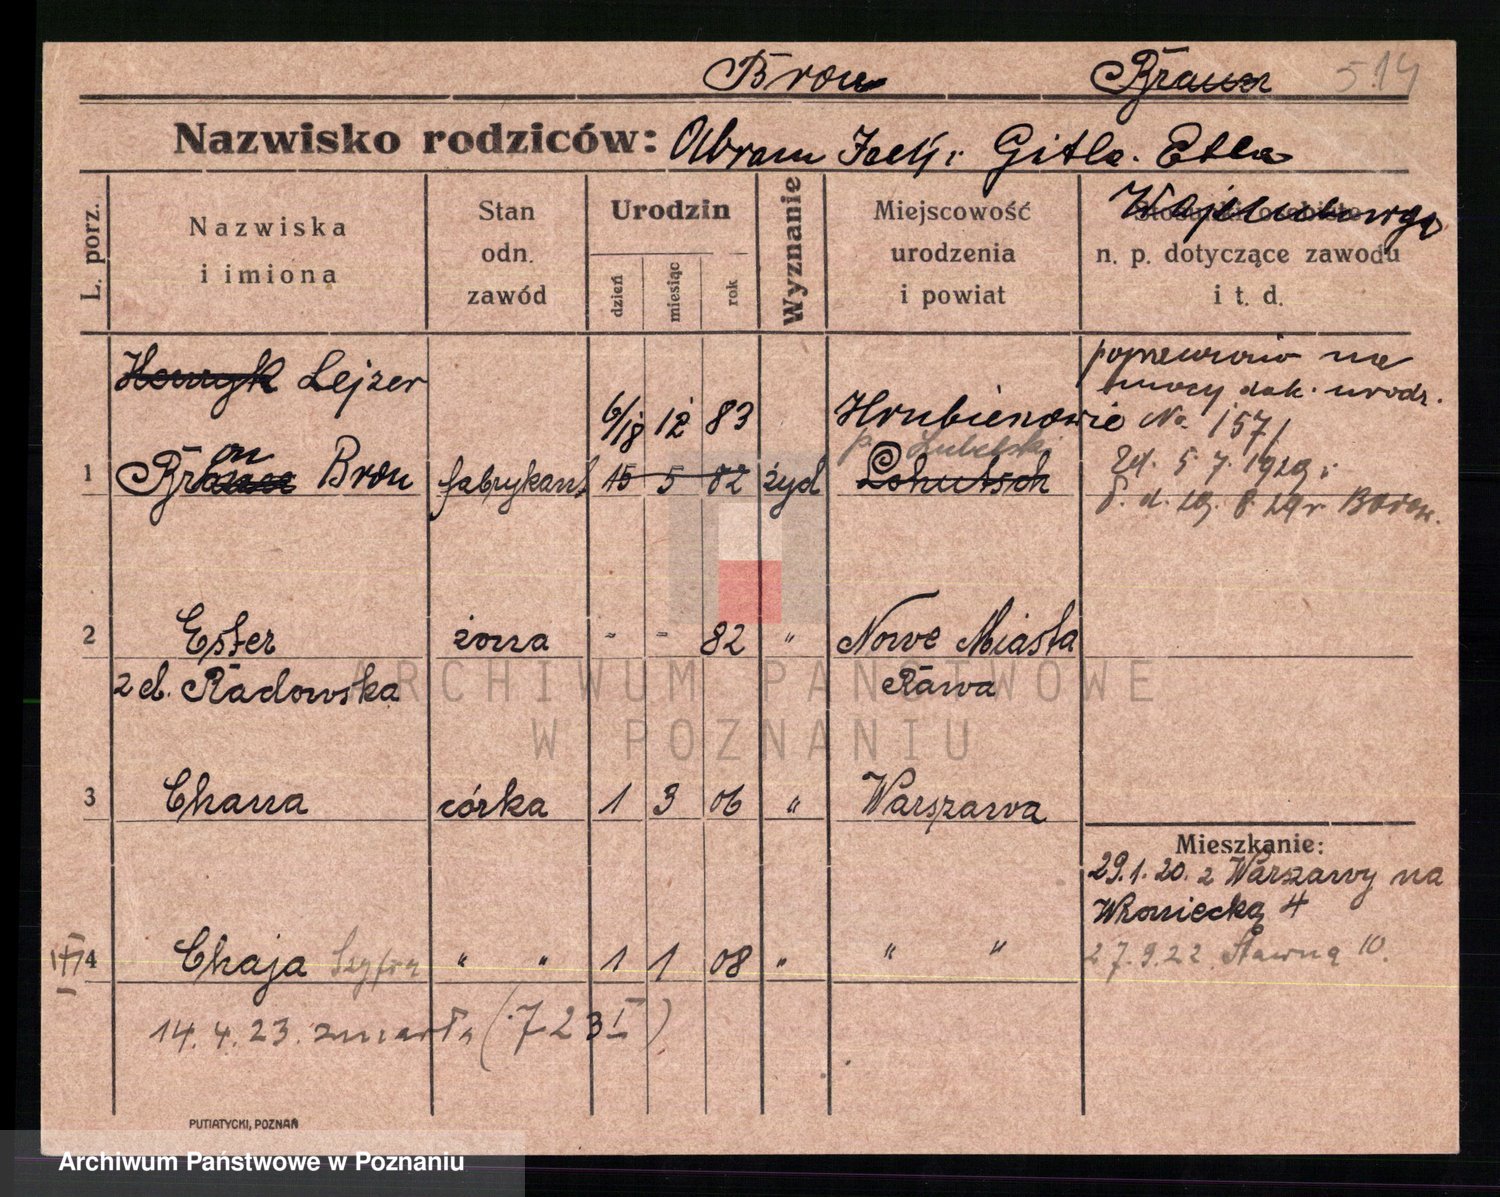 Bron Brauer 514
Nazwisko rodziców: Abram Jcek i Gitla. Etla
L. porz.
Nazwiska
i imiona
Stan
odn.
zawód
Urodzin
dzień
miesiąc
rok
Wyznanie
Miejscowość
urodzenia
i powiat
n. p. dotyczące zawodu
i t. d.
Henryk Lejzer
6/18 12 83
Hrubieszowie
p. Lubelski
na
mocy dok. urodz.
No 157/
Zd. 5 7. 1929 i
1 Bron fabrykant 15 5 82 żyd
2 Ester żona - - 82 " Nowe Miasta
z d. Radowska Rawa
3 Chana córka 1 3 06 " Warszawa
Mieszkanie:
29.1.20. z Warszawy na
Wroniecką 4
4 Chaja " " 1 1 08 " " "
27.9.22 Stawną 10.
14. 4. 23. zmarła (723 I)
PUTIATYCKI, POZNAŃ
ARCHIWUM PAŃSTWOWE
W POZNANIU
Archiwum Państwowe w Poznaniu